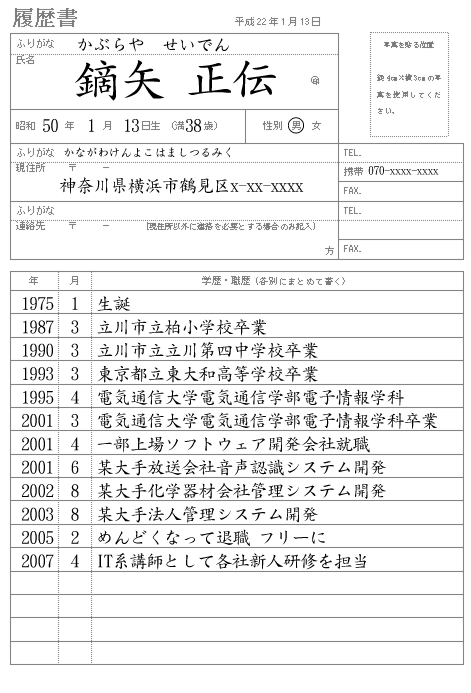 履歴書
平成22年1月13日
ふりがな かぶらや せいでん
氏名
鏑矢 正伝 ㊞
昭和 50 年 1 月 13日生 (満38歳) 性別 男 女
写真を貼る位置
縦4cm×横3cmの写
真を使用してくだ
さい。
ふりがな かながわけんよこはましつるみく
現住所 〒 －
神奈川県横浜市鶴見区x-xx-xxxx
TEL.
携帯 070-xxxx-xxxx
FAX.
ふりがな
連絡先 〒 － (現住所以外に連絡を必要とする場合のみ記入)
方
TEL.
FAX.
年 月 学歴・職歴 (各別にまとめて書く)
1975 1 生誕
1987 3 立川市立柏小学校卒業
1990 3 立川市立立川第四中学校卒業
1993 3 東京都立東大和高等学校卒業
1995 4 電気通信大学電気通信学部電子情報学科
2001 3 電気通信大学電気通信学部電子情報学科卒業
2001 4 一部上場ソフトウェア開発会社就職
2001 6 某大手放送会社音声認識システム開発
2002 8 某大手化学器材会社管理システム開発
2003 8 某大手法人管理システム開発
2005 2 めんどくなって退職 フリーに
2007 4 IT系講師として各社新人研修を担当